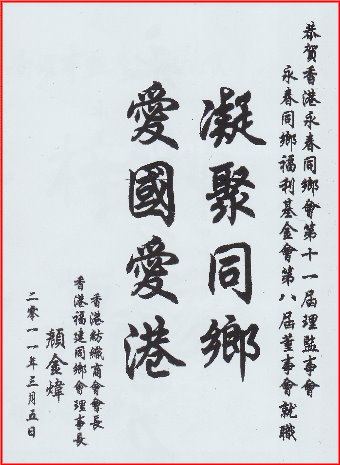 恭賀香港永春同鄉會第十一屆理監事會
永春同鄉福利基金會第八屆董事會就職
凝聚同鄉
愛國愛港
香港紡織商會會長
香港福建同鄉會理事長
顏金煒
二零一一年三月五日